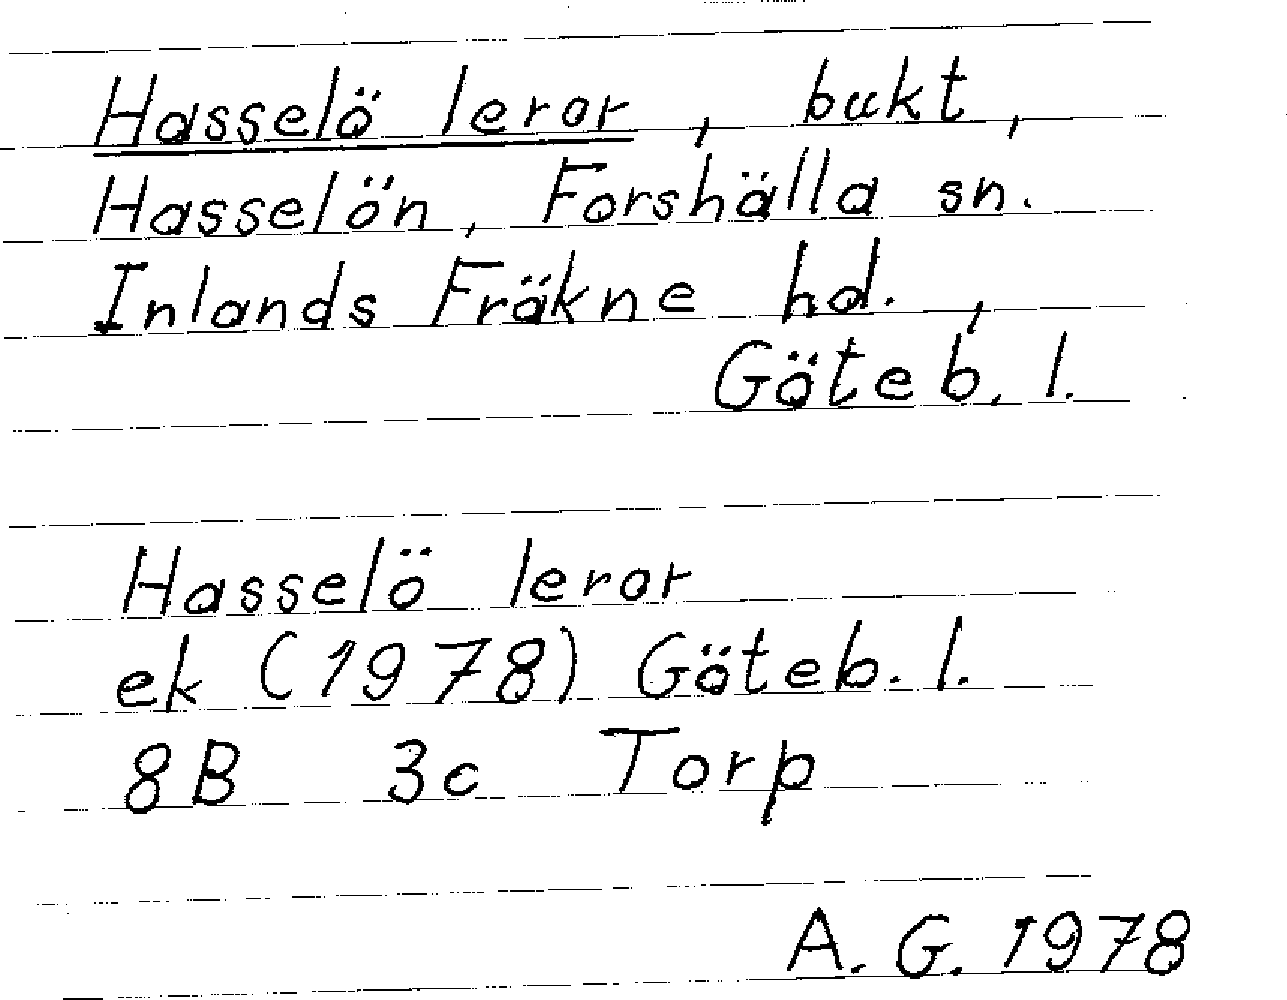 Hasselö leror, bukt,
Hasselön, Forshälla sn.
Inlands Fräkne hd.,
Göteb. l.
Hasselö leror
ek (1978) Göteb. l.
8B 3c Torp
A. G. 1978